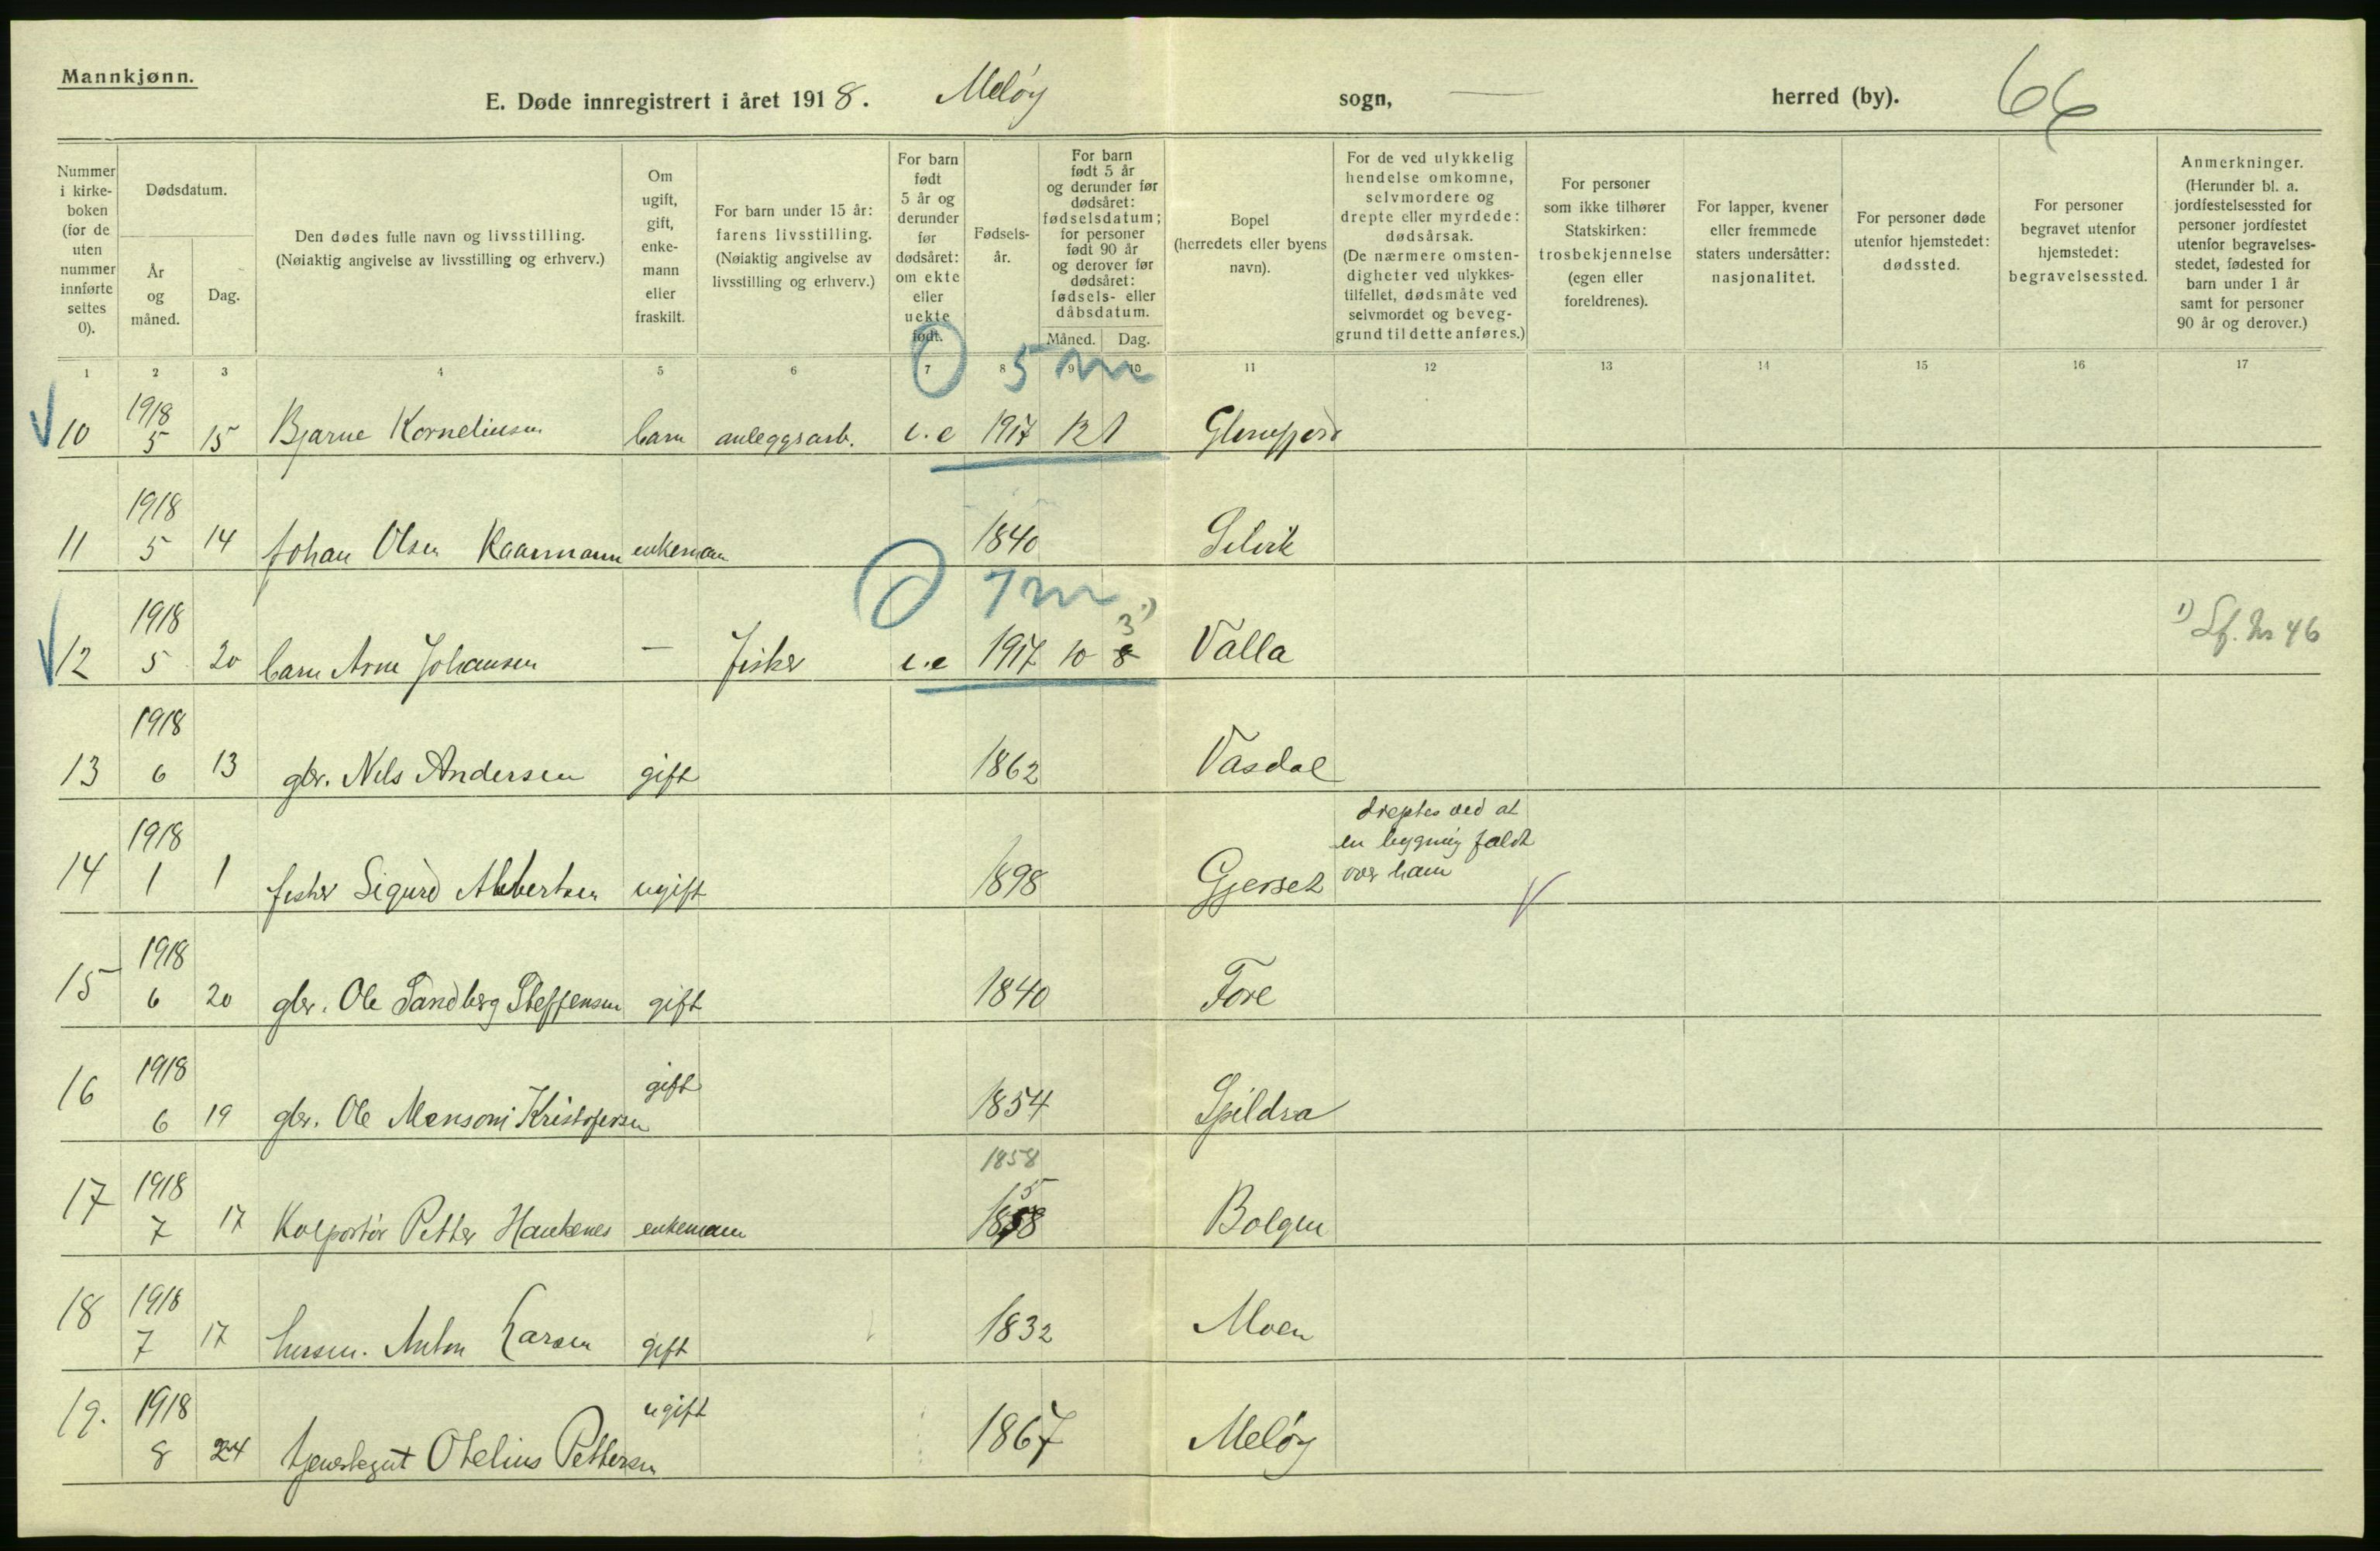 Mannkjønn.
E. Døde innregistrert i året 1918. Meløy sogn, — herred (by). 66
Nummer i kirke-boken (for de uten nummer innførte settes 0).
Dødsdatum.
År og måned.
Dag.
Den dødes fulle navn og livsstilling.
(Nøiaktig angivelse av livsstilling og erhverv.)
Om ugift, gift, enke-mann eller fraskilt.
For barn under 15 år: farens livsstilling.
(Nøiaktig angivelse av livsstilling og erhverv.)
For barn født 5 år og derunder før dødsåret: om ekte eller uekte født.
Fødsels-år.
For barn født 5 år og derunder før dødsåret: fødselsdatum; for personer født 90 år og derover før dødsåret: fødsels- eller dåbsdatum.
Måned. Dag.
Bopel
(herredets eller byens navn).
For de ved ulykkelig hendelse omkomne, selvmordere og drepte eller myrdede: dødsårsak.
(De nærmere omsten-digheter ved ulykkes-tilfellet, dødsmåte ved selvmordet og beveg-grund til dette anføres.)
For personer som ikke tilhører Statskirken: trosbekjennelse
(egen eller foreldrenes).
For lapper, kvener eller fremmede staters undersåtter: nasjonalitet.
For personer døde utenfor hjemstedet: dødssted.
For personer begravet utenfor hjemstedet: begravelsessted.
Anmerkninger.
(Herunder bl. a. jordfestelsessted for personer jordfestet utenfor begravelses-stedet, fødested for barn under 1 år samt for personer 90 år og derover.)
1 2 3 4 5 6 7 8 9 10 11 12 13 14 15 16 17
0 5 m
10 1918 5 15 Bjarne Korneliusen barn anleggsarb. i.e 1917 12 1 Glomfjord
11 1918 5 14 Johan Olsen Kaarmann enkeman 1840 Selvik
0 7 m
12 1918 5 20 barn Arne Johansen — fisker i.e 1917 10 8 3 1) Valla 1) Lf. nr 46
13 1918 6 13 gbr. Nels Andersen gift 1862 Vasdal
14 1918 1 1 fisker Sigurd Albertsen ugift 1898 Gjerset dreptes ved at en bygning faldt over ham
15 1918 6 20 gbr. Ole Sandberg Steffensen gift 1840 Fore
16 1918 6 19 gbr. Ole Mensoni Kristofersen gift 1854 Spildra
1858
17 1918 7 17 Kolportør Petter Haukenes enkemann 1858 5 Bolgen
18 1918 7 17 husm. Anton Larsen gift 1832 Moen
19. 1918 8 24 tjenestegut Otelius Pettersen ugift 1867 Meløy